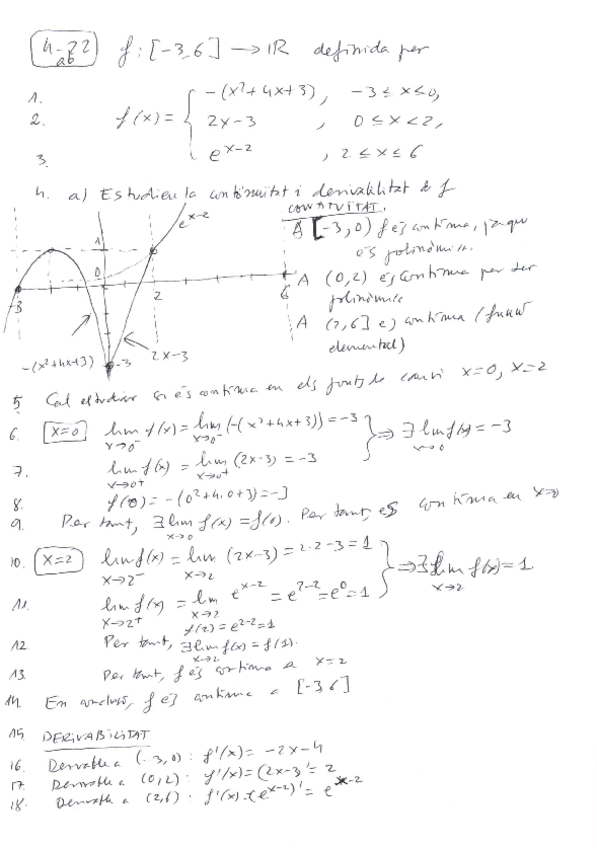 4-22 ab f: [-3,6] → IR definida per
1. -(x²+4x+3), -3 ≤ x ≤ 0,
2. f(x) = { 2x-3 , 0 ≤ x < 2,
3. e^{x-2} , 2 ≤ x ≤ 6
4. a) Estudieu la continuïtat i derivabilitat de f
CONTINUITAT.
A [-3,0) f és contínua, ja que
és polinòmic.
A (0,2) és contínua per ser
polinòmica
A (2,6] és contínua (funció
elemental)
e^{x-2}
1
0
-3 2 6
-(x²+4x+3) -3 2x-3
5. Cal estudiar si és contínua en els punts de canvi x=0, x=2
6. x=0 lim_{x→0⁻} f(x) = lim_{x→0⁻} (-(x²+4x+3)) = -3 } ⇒ ∃ lim_{x→0} f(x) = -3
7. lim_{x→0+} f(x) = lim_{x→0+} (2x-3) = -3
8. f(0) = -(0²+4·0+3) = -3
9. Per tant, ∃ lim_{x→0} f(x) = f(0). Per tant, és contínua en x=0
10. x=2 lim_{x→2⁻} f(x) = lim_{x→2} (2x-3) = 2·2-3 = 1 } ⇒ ∃ lim_{x→2} f(x) = 1
11. lim_{x→2+} f(x) = lim_{x→2} e^{x-2} = e^{2-2} = e⁰ = 1
f(2) = e^{2-2} = 1
12. Per tant, ∃ lim_{x→2} f(x) = f(1).
13. Per tant, f és contínua a x=2
14. En conclusió, f és contínua a [-3,6]
15. DERIVABILITAT
16. Derivable a (-3,0): f'(x) = -2x-4
17. Derivable a (0,2): f'(x) = (2x-3)' = 2
18. Derivable a (2,6): f'(x) = (e^{x-2})' = e^{x-2}